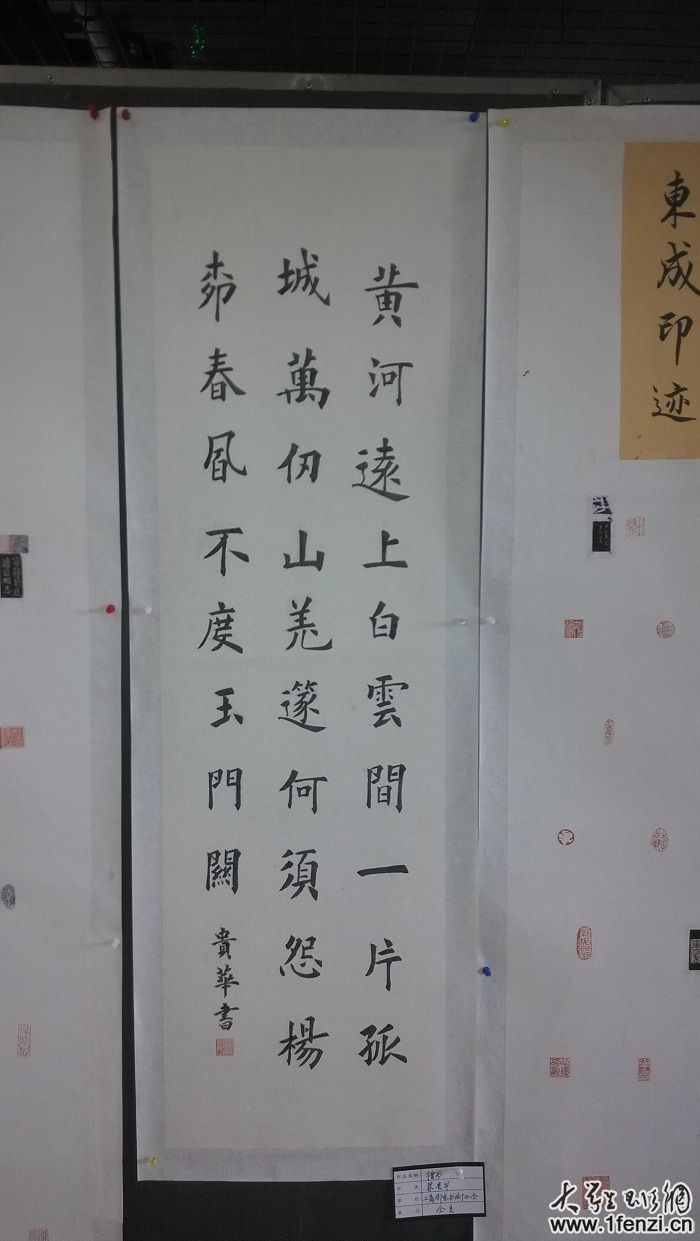 黄河遠上白雲間一片孤
城萬仞山羌篴何須怨楊
桺春風不度玉門關
貴華書
東成印迹
楷书
大学生创业网
www.1fenzi.cn